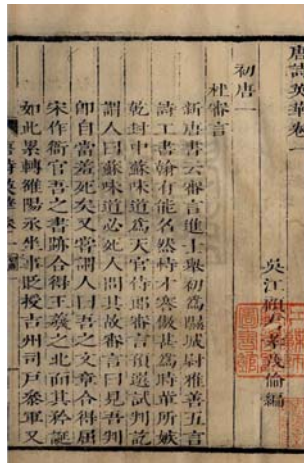 唐詩英華卷一
吳江顧有孝茂倫編
初唐一
杜審言
新唐書云審言進士舉初爲隰城尉雅善五言
詩工書翰有能名然恃才謇傲甚爲時輩所嫉
乾封中蘇味道爲天官侍郎審言預選試判訖
謂人曰蘇味道必死人問其故審言曰見吾判
卽自當羞死矣又嘗謂人曰吾之文章合得屈
宋作衙官吾之書跡合得王羲之北面其矜誕
如此累轉雒陽丞坐事貶授吉州司戶參軍又